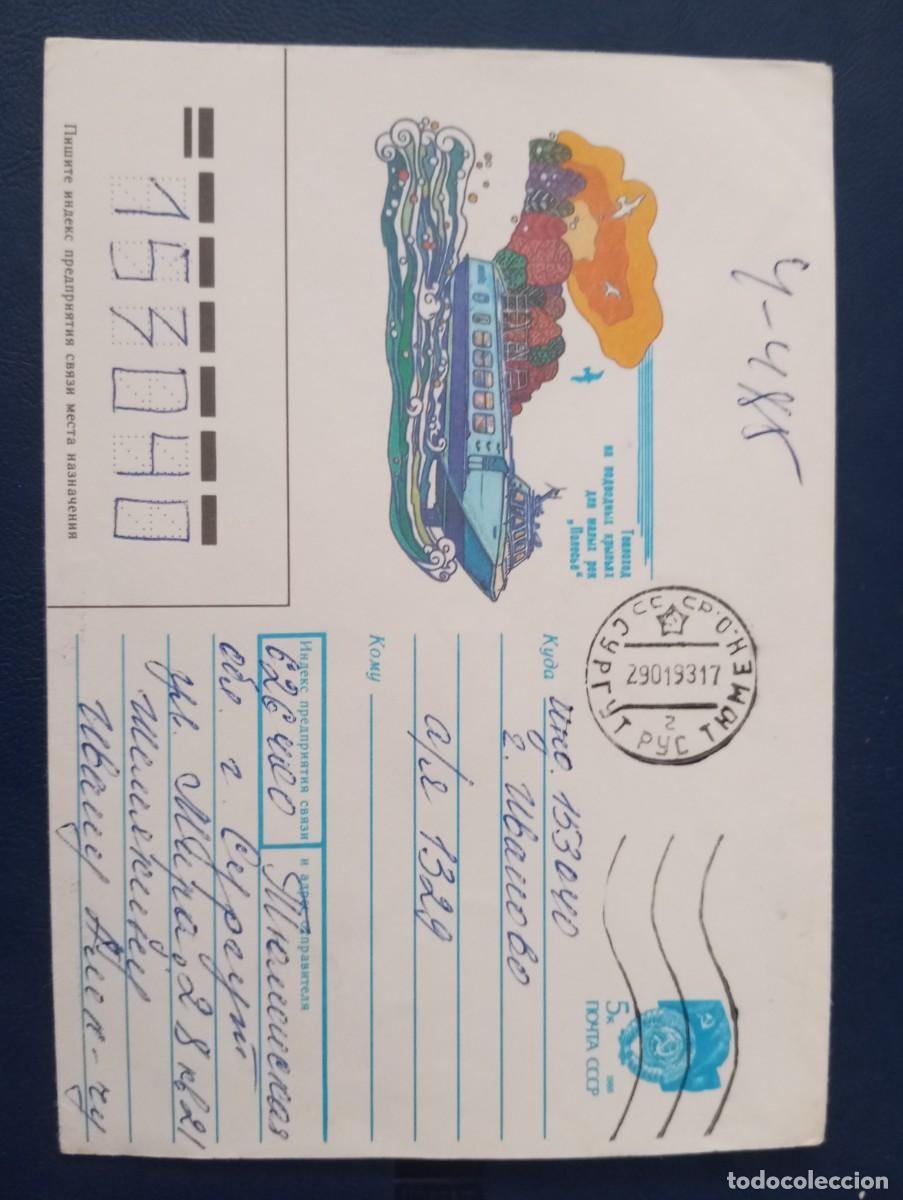 Теплоход
на подводных крыльях
для малых рек
„Полесье“
Ч-485
СССР.О.НЭМЮТ
СУРГУТ РУС
2901931 7
г
5к
1988
ПОЧТА СССР
Куда Инд. 153040
г. Иваново
а/я 1329
Кому
Индекс предприятия связи и адрес отправителя
626400 Тюменская
обл. г. Сургут
ул. Мира д 28 кв 21
Ивану Алек-чу
153040
Пишите индекс предприятия связи места назначения
todocoleccion